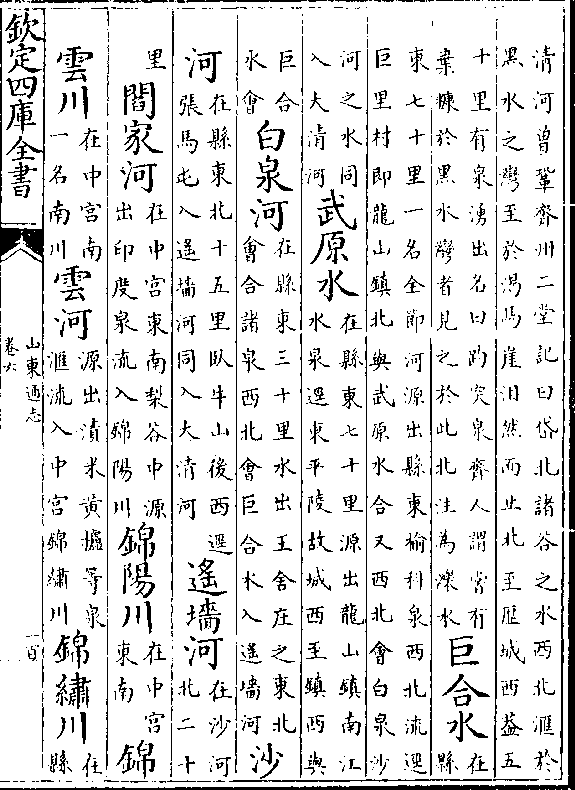 清河曾鞏齊州二堂記曰岱北諸谷之水西北滙於
黑水之灣至於渇馬崖汨然而止北至歴城西葢五
十里有泉湧出名曰趵突泉齊人謂嘗有
棄糠於黑水灣者見之於此北注為濼水
巨合水
在
縣
東七十里一名全節河源出縣東榆科泉西北流逕
巨里村即龍山鎮北與武原水合又西北會白泉沙
河之水同
入大清河
武原水
在縣東七十里源出龍山鎮南江
水泉逕東平陵故城西至鎮西與
巨合
水會
白泉河
在縣東三十里水出王舍庄之東北
會合諸泉西北會巨合水入遥墻河
沙
河
在縣東北十五里臥牛山後西逕
張馬屯入遥墻河同入大清河
遙墻河
在沙河
北二十
里
閻家河
在中宮東南梨谷中源
出印度泉流入錦陽川
錦陽川
在中宮
東南
錦
雲川
在中宮南
一名南川
雲河
源出漬米黄壚等泉
滙流入中宮錦繡川
錦繡川
在
縣
欽定四庫全書
山東通志
卷六
一百